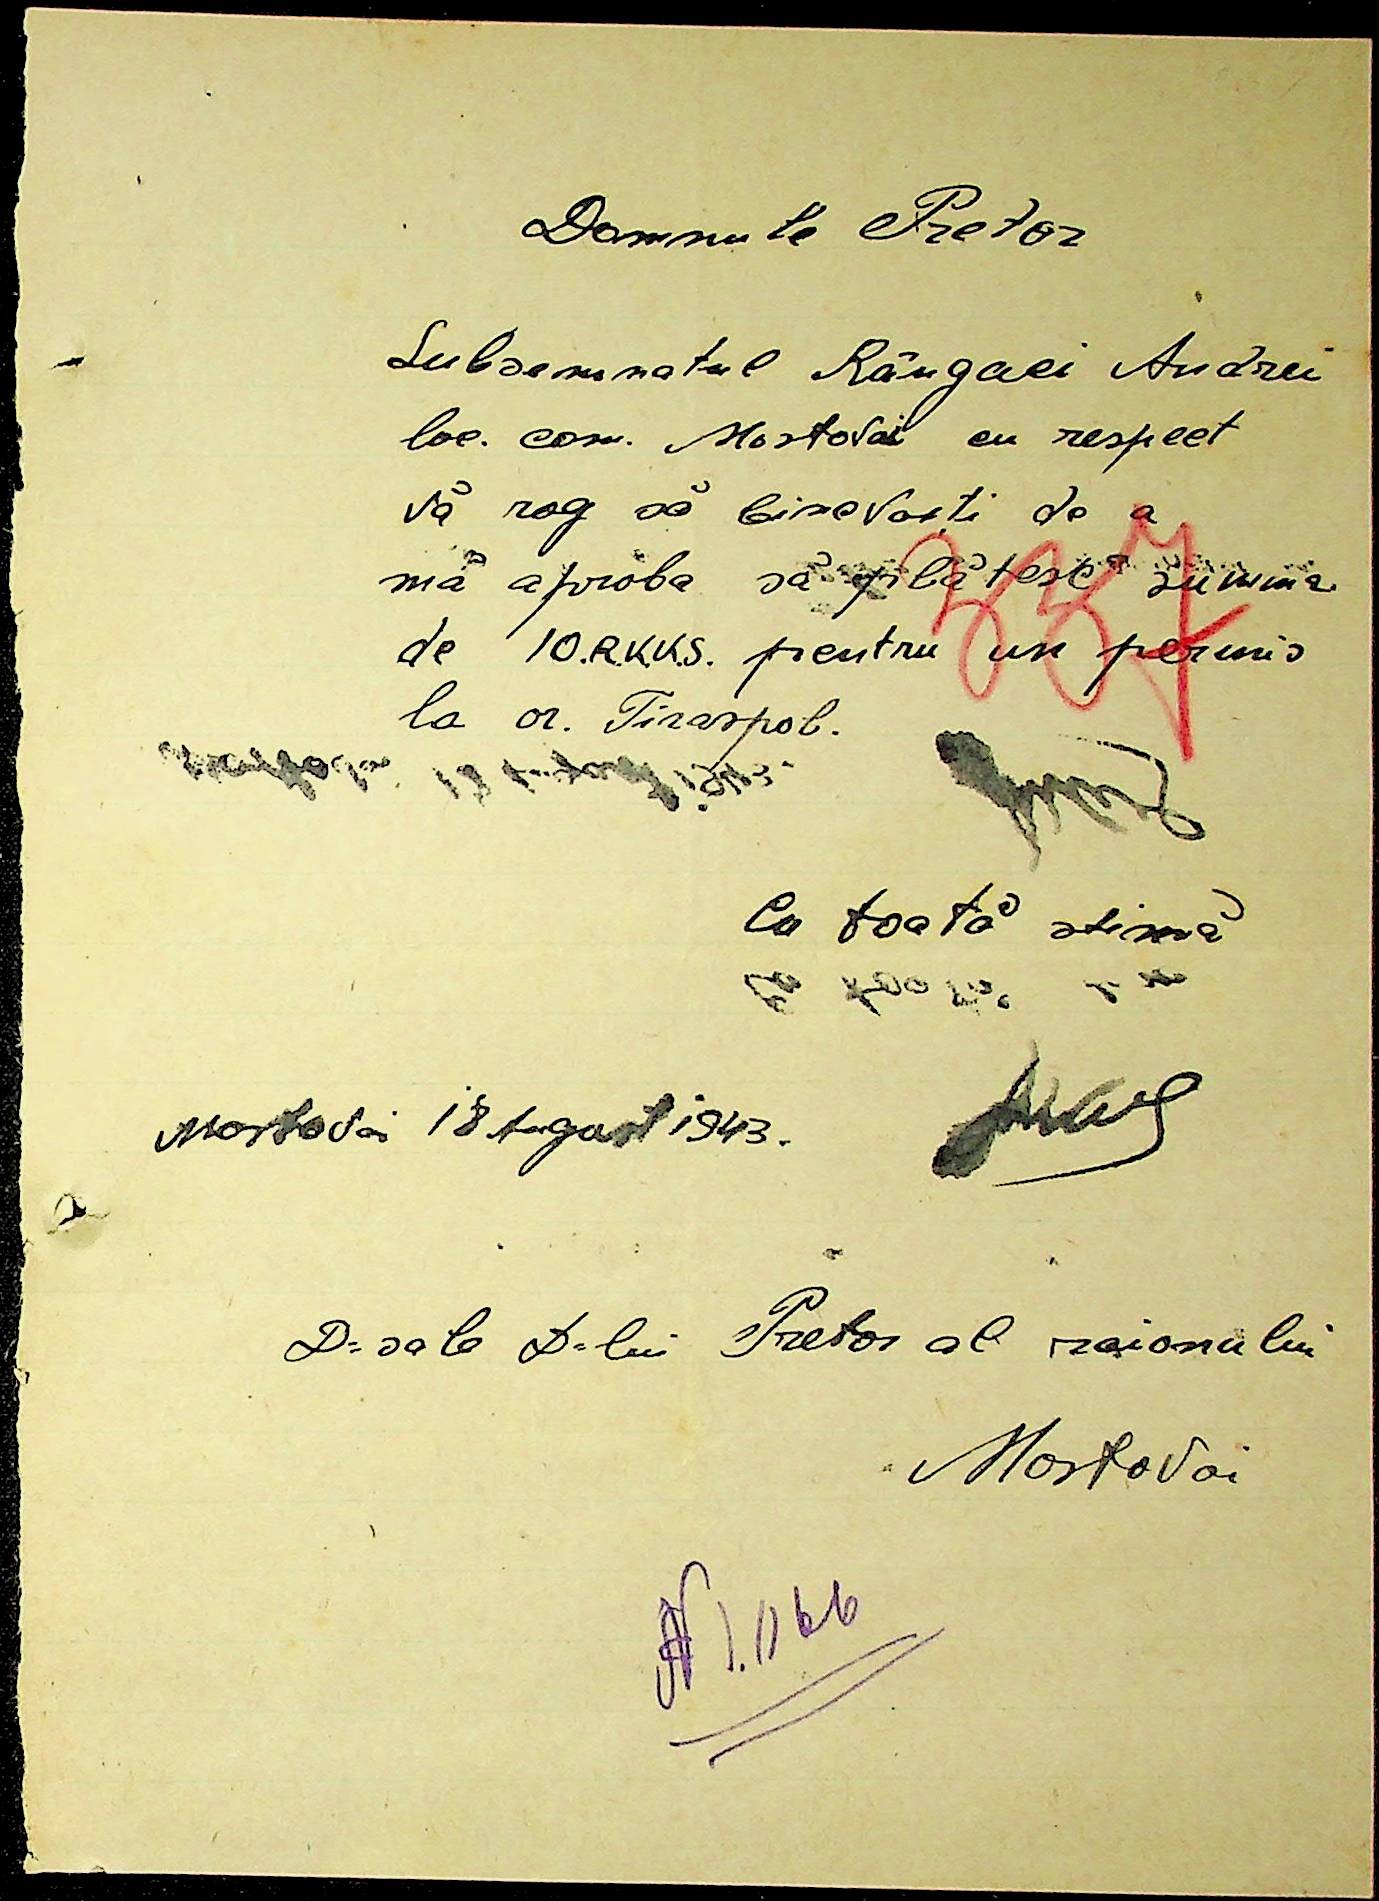 Domnule Pretor
Subsemnatul Rângaci Andrei
loc. com. Mostovoi cu respect
vă rog să binevoiți de a
mă aproba să plătesc summa
de 10.R.K.K.S. pentru un permis
la or. Tiraspol.
337
Cu toată stimă
Mostovoi 18 August 1943.
D-sale D-lui Pretor al raionului
Mostovoi
N 1.1166